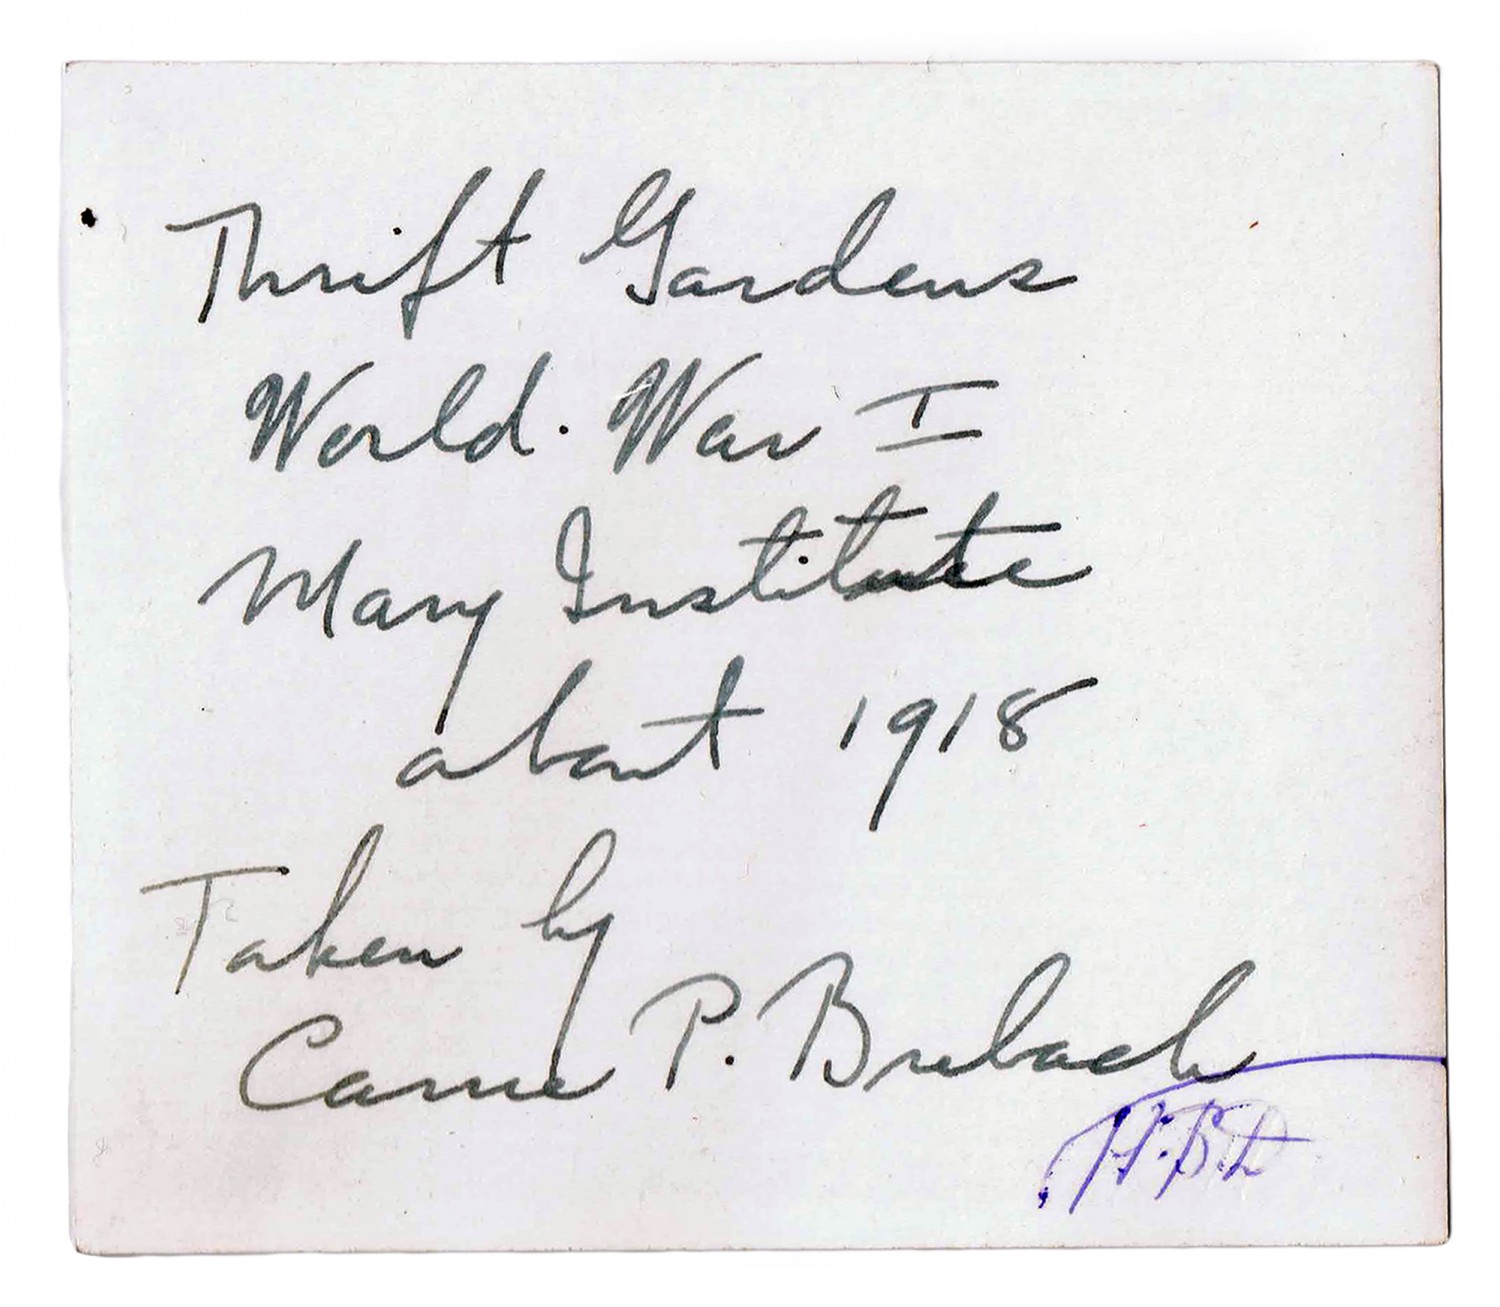 Thrift Gardens
World. War I
Mary Institute
about 1918
Taken by
Carrie P. Brebach